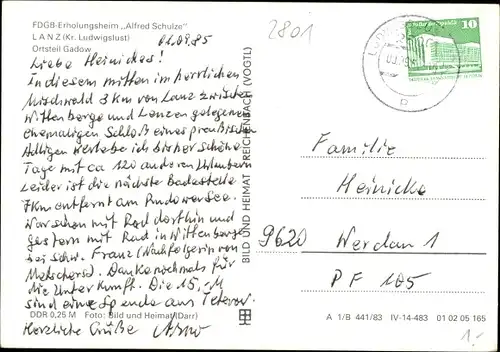 FDGB-Erholungsheim „Alfred Schulze"
LANZ (Kr. Ludwigslust)
Ortsteil Gadow
2801
02.09.85
Liebe Heinickes!
In diesem mitten im herrlichen
Mischwald 3 km von Lanz zwischen
Wittenberge und Lenzen gelegenen
ehemaligen Schloß eines preußischen
Adligen verlebe ich bisher schöne
Tage mit ca 120 anderen Urlaubern
Leider ist die nächste Badestelle
7km entfernt am Rudower See.
War schon mit Rad dorthin und
gestern mit Rad in Wittenberge
bei Schw. Franz (Nachfolgerin von
). Danke nochmals für
die Unterkunft. Die 15,-M
sind eine Spende aus Teterow.
Herzliche Grüße Arno
DDR 0,25 M Foto: Bild und Heimat (Darr)
BILD UND HEIMAT REICHENBACH (VOGTL)
10
Familie
Heinicke
9620 Werdau 1
PF 105
A 1/B 441/83 IV-14-483 01 02 05 165
1.-